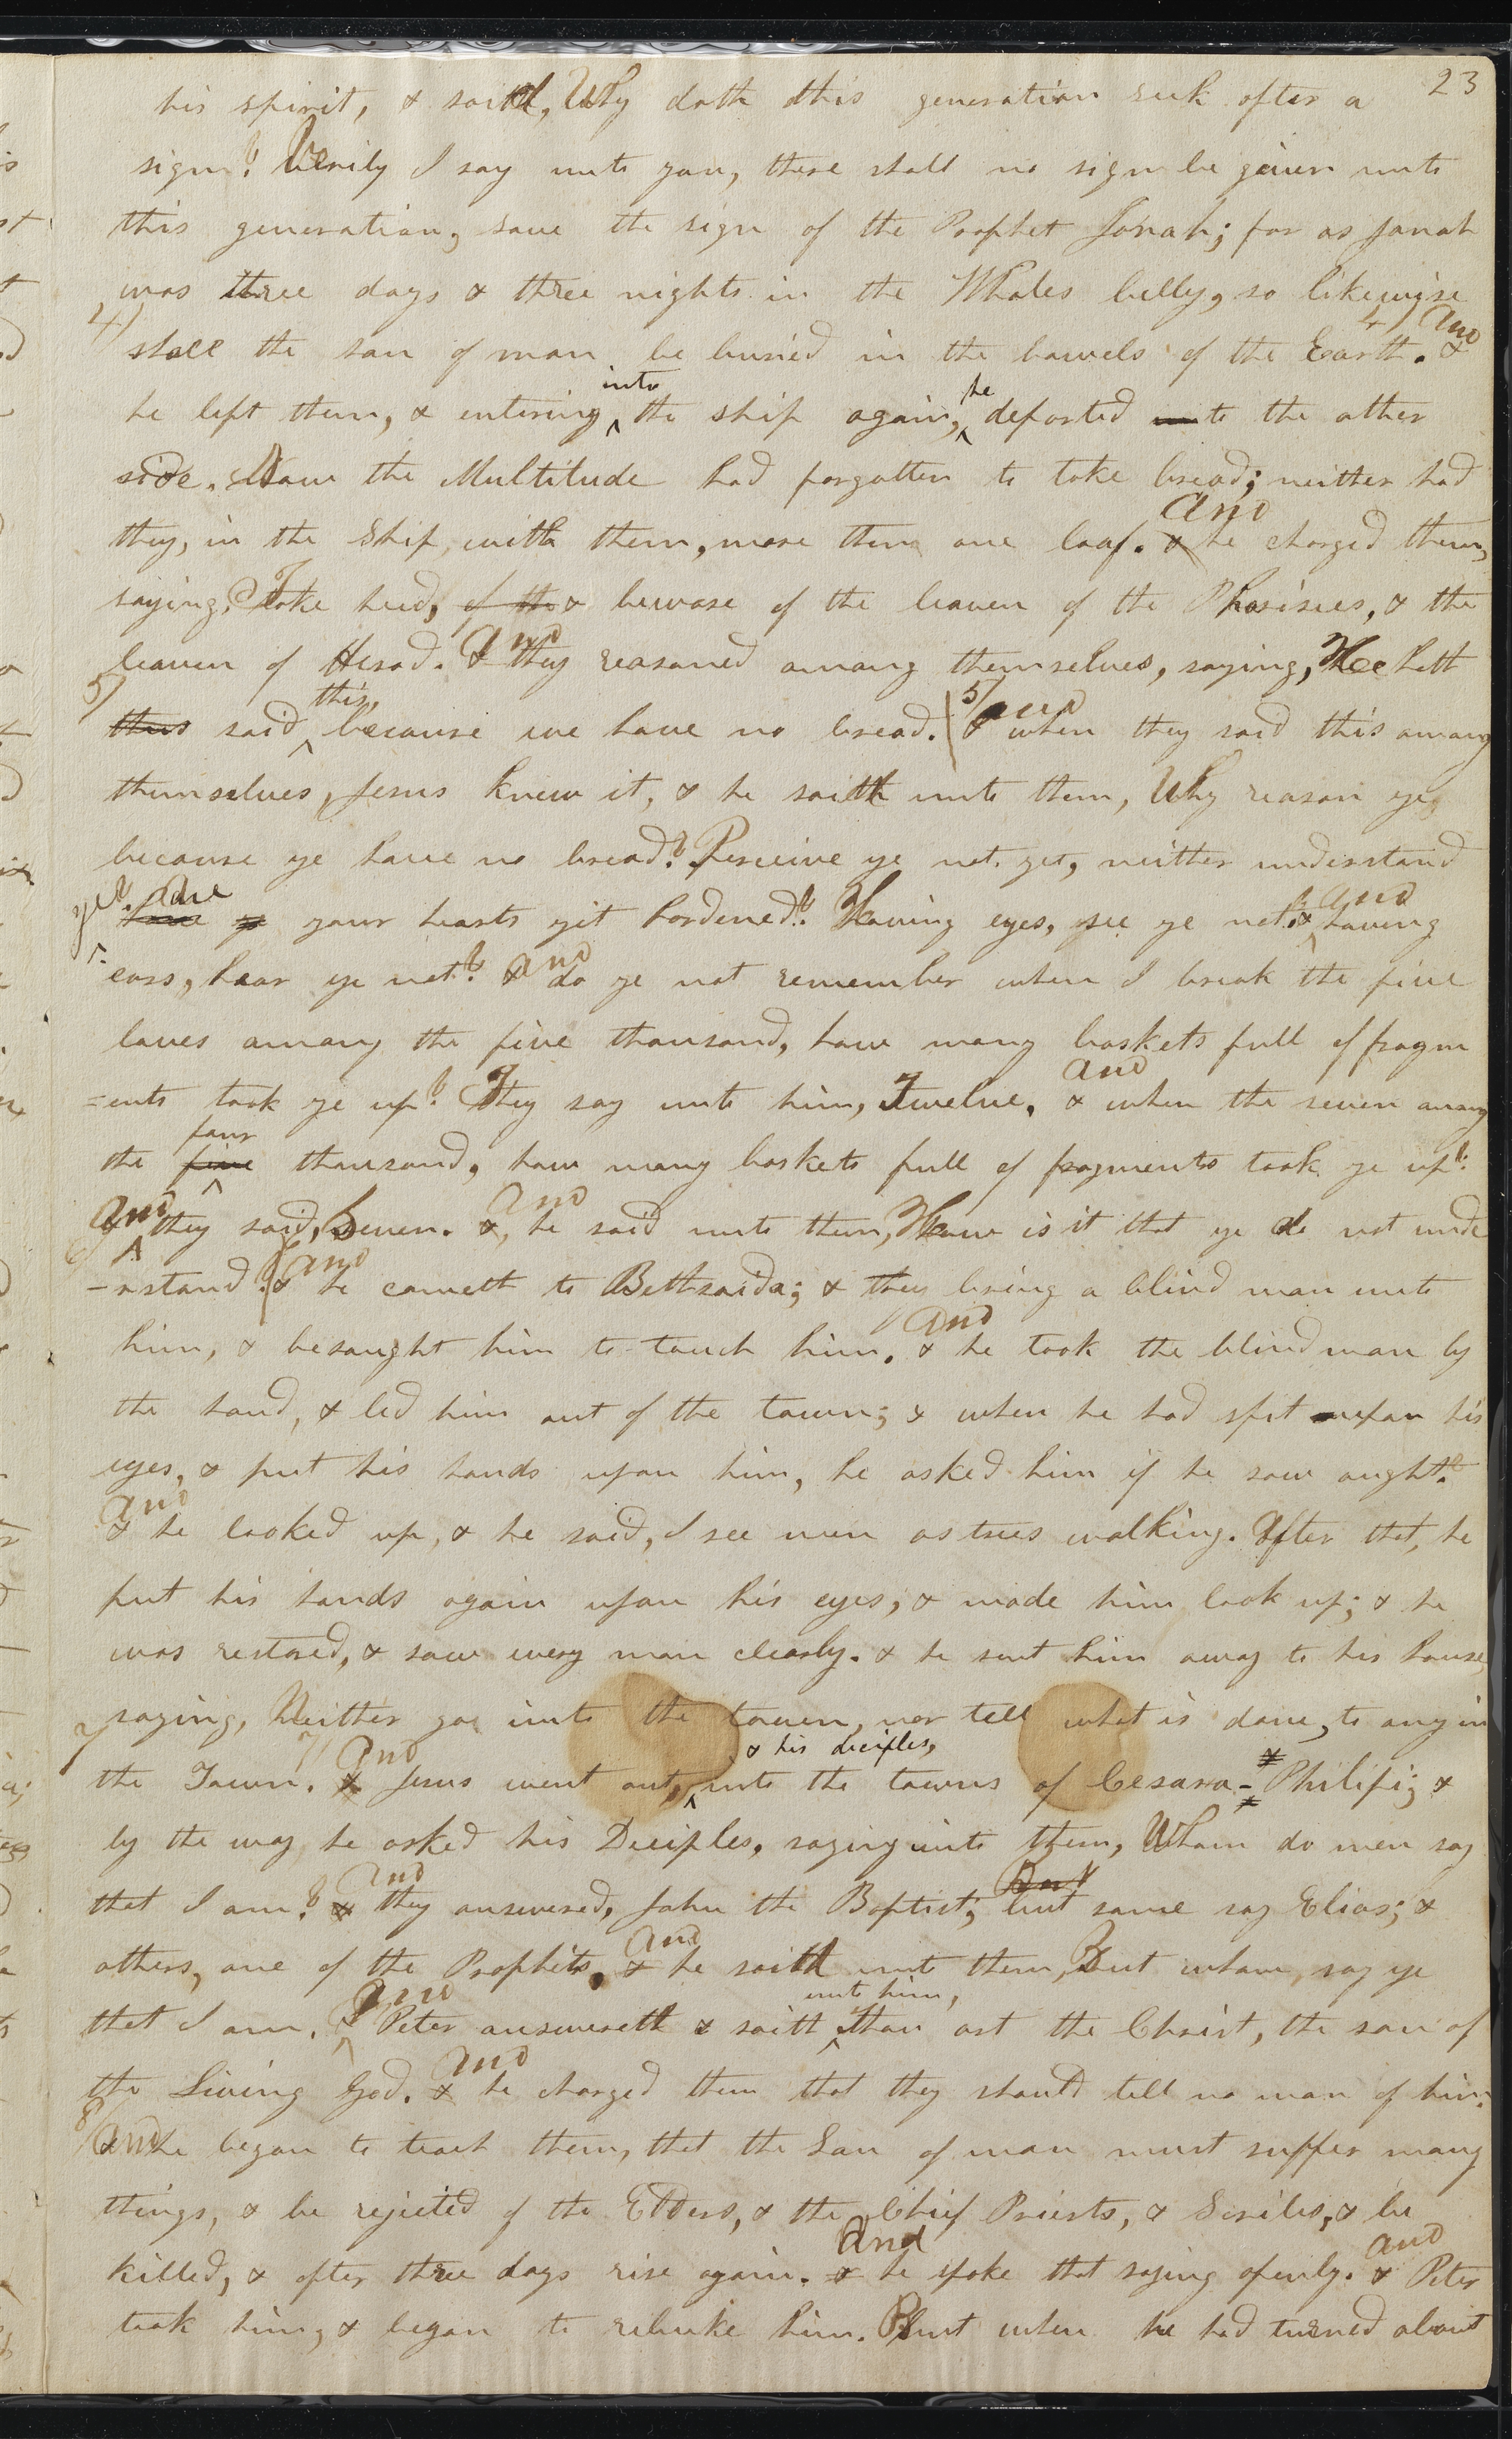 23
his spirit, & saith, Why doth this generation seek after a
sign? Verily I say unto you, there shall no sign be given unto
this generation, save the sign of the Prophet Jonah; for as Jonah
was three days & three nights in the Whales belly, so likewise
4/ shall the son of man be buried in the bowels of the Earth. 4/ And &
he left them, & entering ^into the ship again, ^he departed to the other
side. Now the Multitude had forgotten to take bread; neither had
they, in the Ship with them, more then one loaf. And & he charged them,
saying, Take heed, of the & beware of the leaven of the Pharisees, & the
leaven of Herod. And & they reasoned among themselves, saying, He hath
5/ thus said ^this, because we have no bread. 5/ And & when they said this among
themselves, Jesus knew it, & he saith unto them, Why reason ye,
because ye have no bread? Perceive ye not yet, neither understand
ye? Are have ye your hearts yet hardened? Having eyes, see ye not? & and having
ears, hear ye not? & and do ye not remember when I break the five
loves among the five thousand, how many baskets full of fragm
=ents took ye up? They say unto him, Twelve. and & when the seven among
the five ^four thousand, how many baskets full of fragments took ye up?
And & they said, Seven. And &, he said unto them, How is it that ye do not unde
6/ -rstand? 6/ And & he cometh to Bethsaida; & they bring a blind man unto
him, & besought him to touch him. And & he took the blind man by
the hand, & led him out of the town; & when he had spit upon his
eyes, & put his hands upon him, he asked him if he saw aught?
And & he looked up, & he said, I see men as trees walking. After that, he
put his hands again upon his eyes; & made him look up; & he
was restored, & saw every man clearly. & he sent him away to his house
saying, Neither go into the town, nor tell what is done, to any in
7/ the Town. 7/ And & Jesus went out, ^& his deciples, into the towns of Cesara-Philipi; &
by the way he asked his Deciples, saying unto them, Whom do men say
that I am? And & they answered, John the Baptist; But but some say Elias; &
others, one of the Prophets. And & he saith unto them, But whom say ye
that I am. And & Peter answereth & saith ^unto him, thou art the Christ, the son of
the Living God. And & he charged them that they should tell no man of him.
8/ And & he began to teach them, that the Son of man must suffer many
things, & be rejected of the Elders, & the Chief Priests, & Scribes, & be
killed, & after three days rise again. And & he spake that saying openly. And & Peter
took him, & began to rebuke him. But when he had turned about